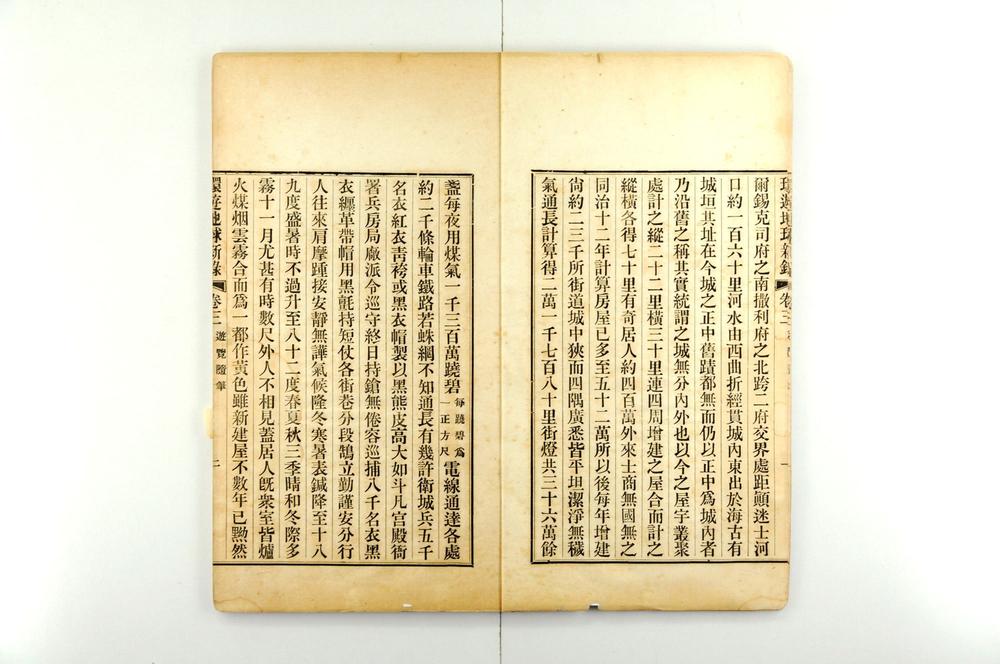 環遊地球新錄 卷三
爾錫克司府之南撒利府之北跨二府交界處距顛迷士河
口約一百六十里河水由西曲折經貫城內東出於海古有
城垣其址在今城之正中舊蹟都無而仍以正中為城內者
乃沿舊之稱其實統謂之城無分內外也以今之屋宇叢聚
處計之縱二十二里橫三十里連四周增建之屋合而計之
縱橫各得七十里有奇居人約四百萬外來士商無國無之
同治十二年計算房屋已多至五十二萬所以後每年增建
尙約二三千所街道城中狹而四隅廣悉皆平坦潔淨無穢
氣通長計算得二萬一千七百八十里街燈共三十六萬餘
盞每夜用煤氣一千三百萬蹺碧每蹺碧爲一正方尺電線通達各處
約二千條輪車鐵路若蛛網不知通長有幾許衛城兵五千
名衣紅衣靑袴或黑衣帽製以黑熊皮高大如斗凡宮殿衙
署兵房局廠派令巡守終日持鎗無倦容巡捕八千名衣黑
衣纏革帶帽用黑氈持短仗各街巷分段鵠立勤謹安分行
人往來肩摩踵接安靜無譁氣候隆冬寒暑表鍼降至十八
九度盛暑時不過升至八十二度春夏秋三季晴和冬際多
霧十一月尤甚有時數尺外人不相見蓋居人旣衆室皆爐
火煤烟雲霧合而爲一都作黃色雖新建屋不數年已黝然
環遊地球新錄 卷三 遊覽隨筆 二